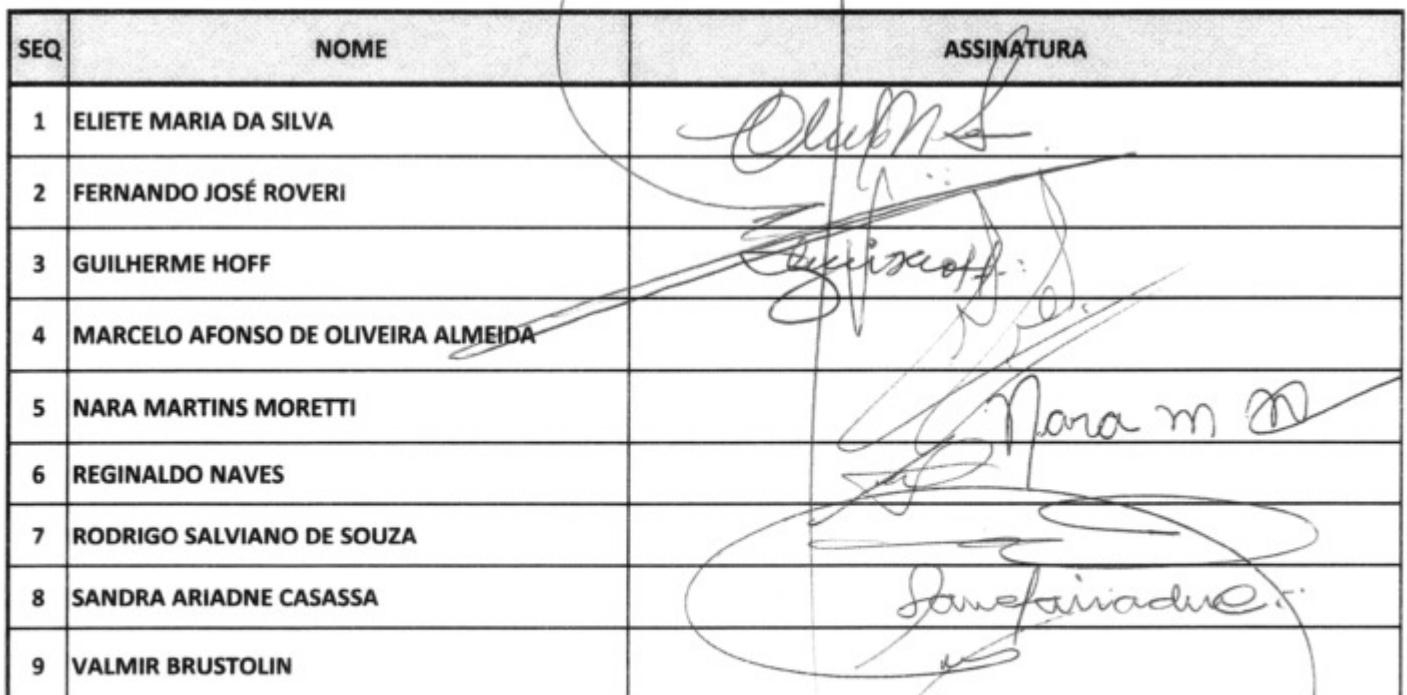 SEQ NOME ASSINATURA
1 ELIETE MARIA DA SILVA
2 FERNANDO JOSÉ ROVERI
3 GUILHERME HOFF
4 MARCELO AFONSO DE OLIVEIRA ALMEIDA
5 NARA MARTINS MORETTI Nara m m
6 REGINALDO NAVES
7 RODRIGO SALVIANO DE SOUZA
8 SANDRA ARIADNE CASASSA
9 VALMIR BRUSTOLIN